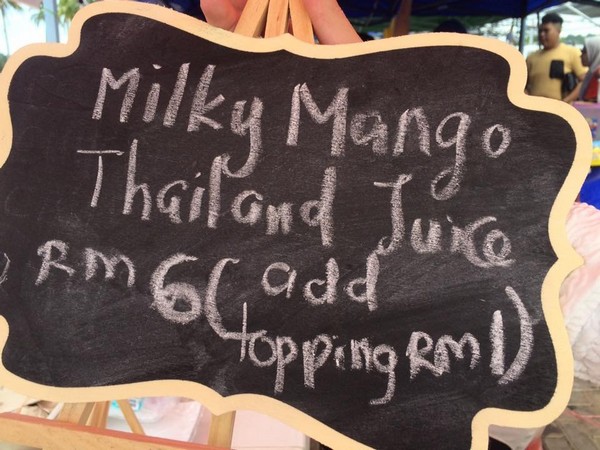 Milky Mango
Thailand Juice
RM 6 (add
topping RM1)